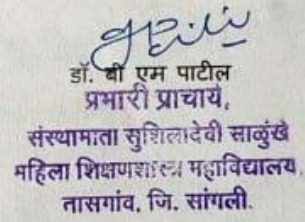 डॉ. बी एम पाटील
प्रभारी प्राचार्य,
संस्थामाता सुशिलादेवी साळुंखे
महिला शिक्षणशास्त्र महाविद्यालय,
तासगांव, जि. सांगली.